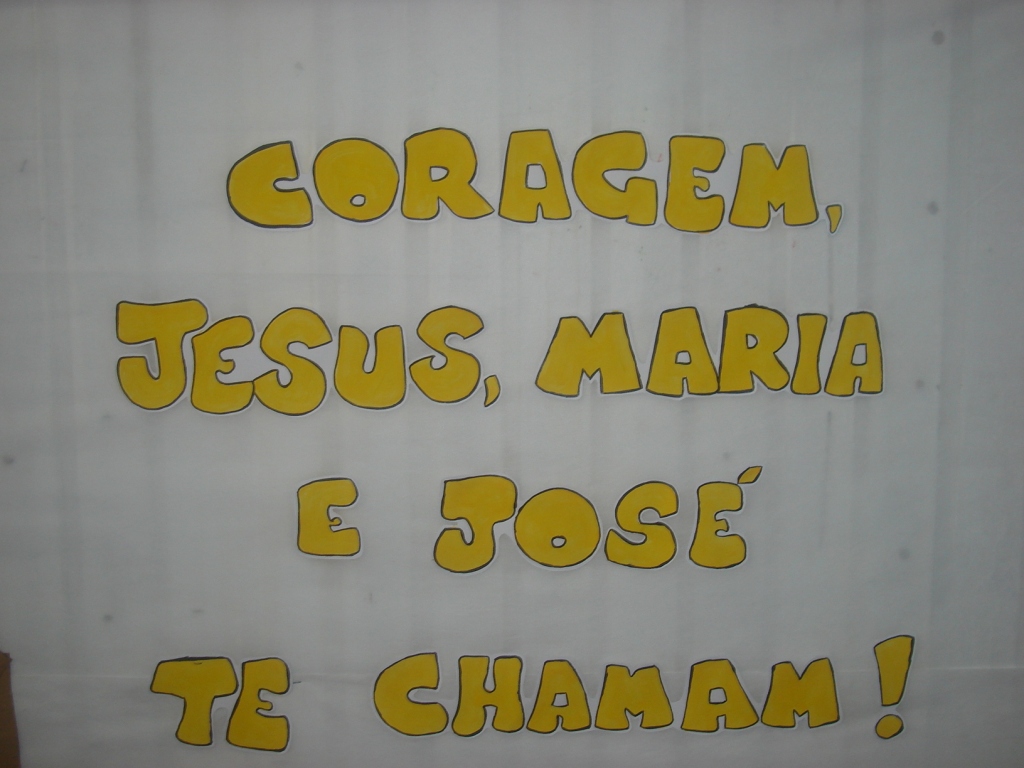 CORAGEM,
JESUS, MARIA
E JOSÉ
TE CHAMAM!